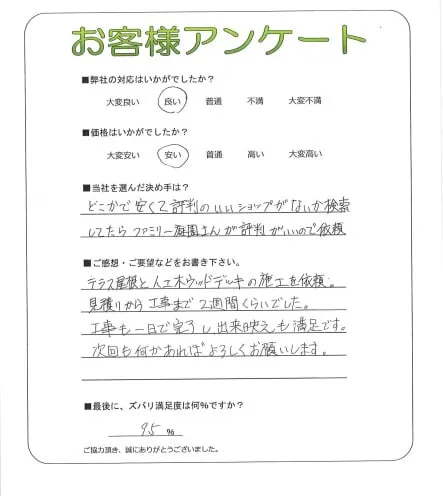 お客様アンケート
■弊社の対応はいかがでしたか？
大変良い 良い 普通 不満 大変不満
■価格はいかがでしたか？
大変安い 安い 普通 高い 大変高い
■当社を選んだ決め手は？
どこかで安くて評判のいいショップがないか検索
してたらファミリー庭園さんが評判がいいので依頼
■ご感想・ご要望などをお書き下さい。
テラス屋根と人工木ウッドデッキの施工を依頼。
見積りから工事まで2週間くらいでした。
工事も一日で完了し、出来映えも満足です。
次回も何かあればよろしくお願いします。
■最後に、ズバリ満足度は何%ですか？
95 %
ご協力頂き、誠にありがとうございました。